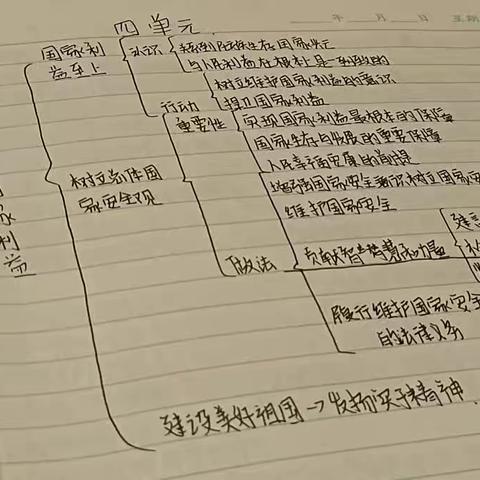 四单元
年 月 日
国家利益至上
认识
与人民利益在根本上是一致的
树立维护国家利益的意识
行动
捍卫国家利益
重要性
实现国家利益最根本的保障
国家生存与发展的重要保障
人民幸福安康的前提
树立总体国家安全观
增强国家安全意识树立国家安
维护国家安全
做法
贡献智慧和力量
履行维护国家安全
的法律义务
家利益
建设美好祖国→发扬实干精神